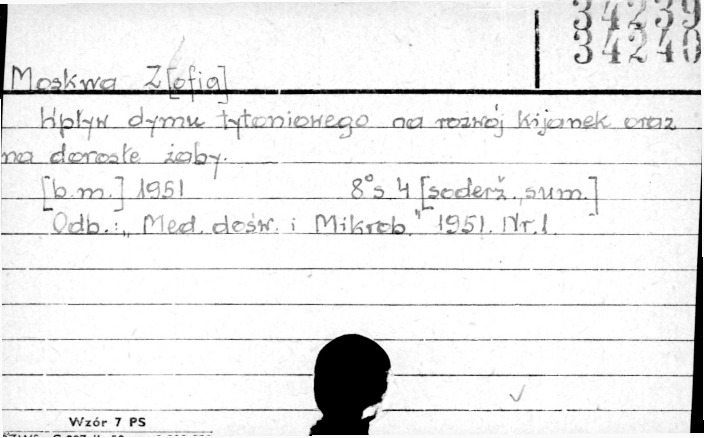 34239
34240
Moskwa Z[ofia]
Wpływ dymu tytoniowego na rozwój kijanek oraz
na dorosłe żaby.
[b.m.] 1951 8°s 4 [soderž., sum.]
Odb.: „Med. dośw. i Mikrob." 1951. Nr. 1.
Wzór 7 PS